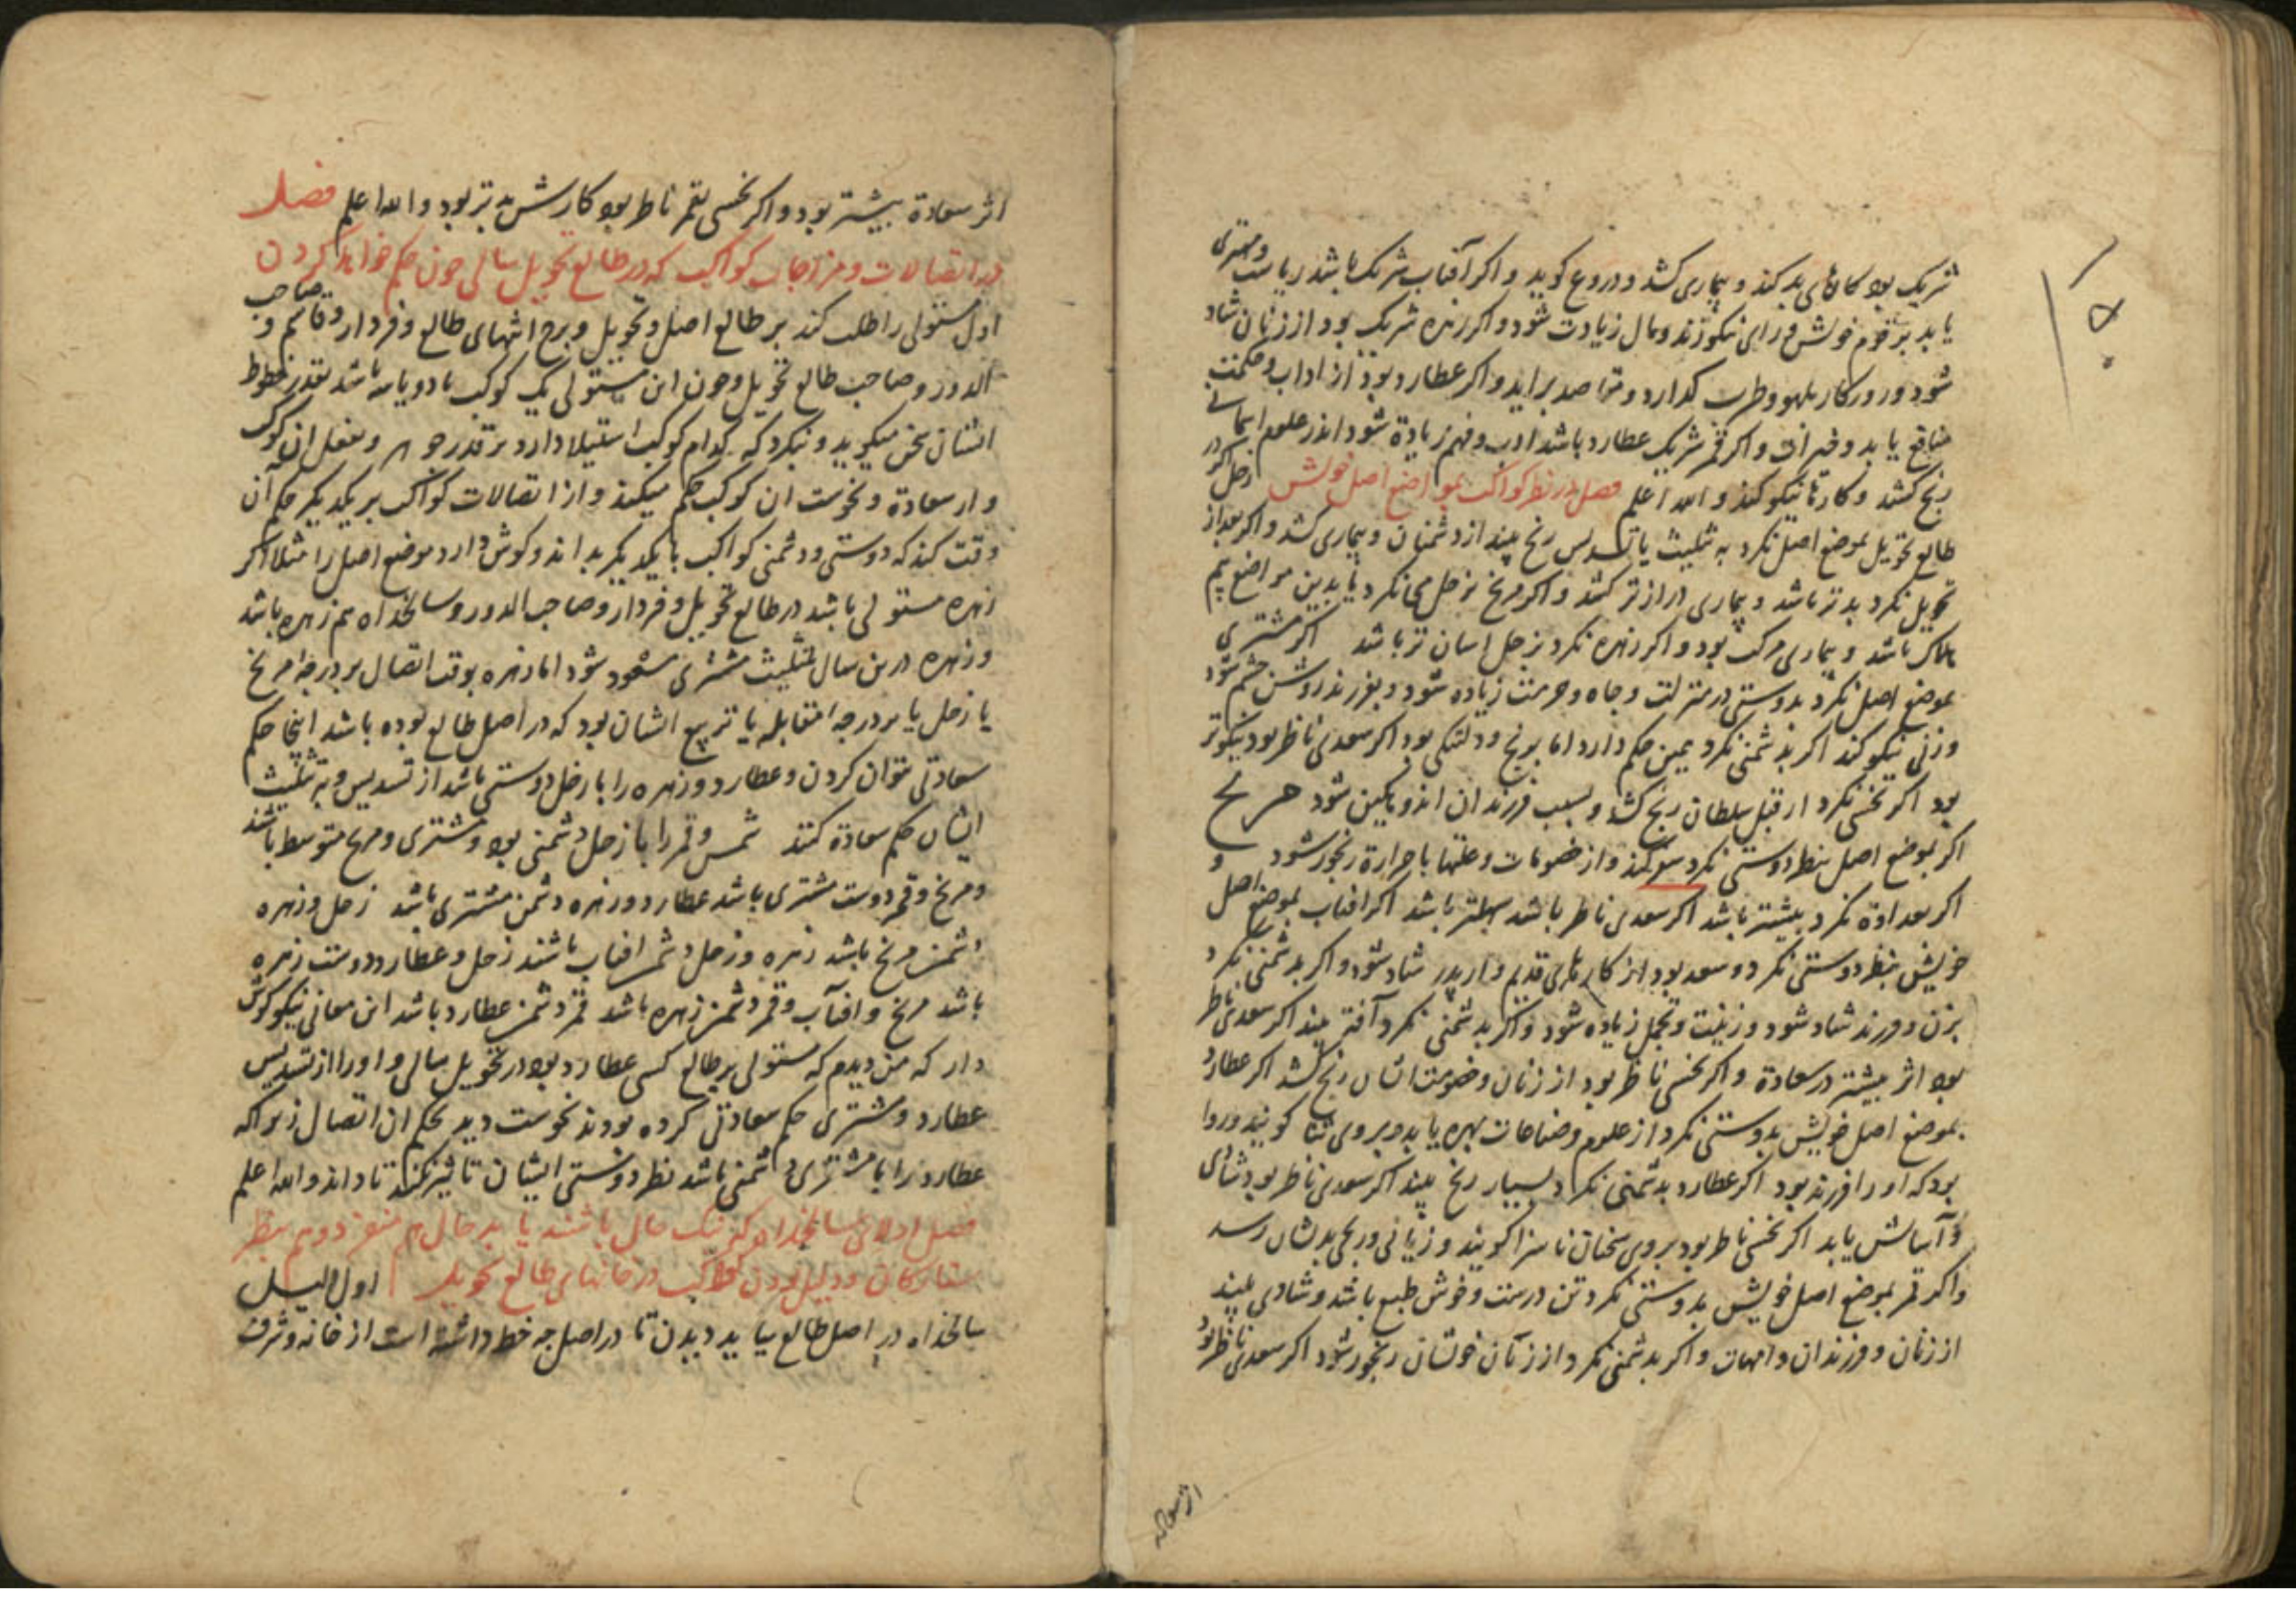 شریک بود کارهای بد کند و بیماری کشد و دروغ کوید و اکر آفتاب شریک باشد ریاست و مهتری
یابد بر قوم خویش و رای نیکو زند و مال زیادت شود و اکر زهره شریک بود از زنان شاد
شود و روزکار بلهو و طرب کذارد و مقاصد براید و اکر عطارد بود از اداب و حکمت
منافع یابد و اکر قمر شریک عطارد باشد ادب و فهم زیادة شود اندر علوم اما
رنج کشد و کارها نیکو کند و الله اعلم فصل در نظر کواکب بمواضع اصل خویش زحل کر در
طالع تحویل بموضع اصل نکرد به تثلیث یا تسدیس رنج بیند از دشمنان و بیماری کشد و اکر بعد از
تحویل نکرد بدتر باشد و بیماری درازتر کشد و اکر مریخ بزحل نکرد یا بدین مواضع بیم
هلاک باشد و بیماری مرکب بود و اکر زهره نکرد بزحل اسان تر باشد اکر مشتری
بموضع اصل نکرد بدوستی در منزلت و جاه و حرمت زیاده شود و بفرزند روشن چشم شود
و زنی نیکو کند اکر بدشمنی نکرد همین حکم دارد اما برنج و دلتنکی بود اکر سعدی ناظر بود نیکوتر
بود اکر نحسی نکرد از قبل سلطان رنج کشد و بسبب فرزندان اندوهکین شود مریخ
اکر بموضع اصل بنظر دوستی نکرد سفر کند و از خصومات و علتها با حرارة رنجور شود و
اکر بعداوة نکرد بیشتر باشد اکر سعدی ناظر باشد سهلتر باشد اکر افتاب بموضع اصل
خویش بنظر دوستی نکرد و سعد بود از کارهای قدیم و از پدر شاد شود و اکر بدشمنی نکرد
بزن و فرزند شاد شود و زینت و تجمل زیاده شود و اکر بدشمنی نکرد آفتی بیند اکر سعدی ناظر
بود اثر بیشتر در سعادة و اکر نحسی ناظر بود از زنان و خصومت اشان رنج کشد اکر عطارد
بموضع اصل خویش بدوستی نکرد از علوم و صناعات بهره یابد و بروی ثنا کویند و روا
بود که او را فرزند بود اکر عطارد بدشمنی نکرد بسیار رنج بیند اکر سعدی ناظر بود شادی
و آسایش یابد اکر نحسی ناظر بود بروی سخنان ناسزا کویند و زیانی و رنجی بدیشان رسد
و اکر قمر بموضع اصل خویش بدوستی نکرد تن درست و خوش طبع باشد و شادی بیند
از زنان و فرزندان و امهات و اکر بدشمنی نکرد از زنان خوشان رنجور شود اکر سعدی ناظر بود
اثر سعادة
اثر سعادة بیشتر بود و اکر نحسی بقمر ناظر بود کارش بدتر بود والله اعلم فصل
در اتصالات و مزاجات کواکب که در طالع تحویل سالی چون حکم خواهد کردن
اول مستولی را طلب کند بر طالع اصل و تحویل و برج انتهای طالع و فردار و قاسم و صاحب
الدور و صاحب طالع تحویل و چون این مستولی یک کوکب یا دو یا سه باشد بقدر خطوط
اشان سخن میکوید و نیکرد که کدام کوکب استیلا دارد بر قدر و بفعل ان کوکب
و از سعادة و نحوست ان کوکب حکم میکند و از اتصالات کواکب بر یکدیکر حکم آن
وقت کند که دوستی و دشمنی کواکب با یکدیکر بداند و کوش دارد موضع اصل را مثلا اکر
زهره مستولی باشد در طالع تحویل و فردار و صاحب الدور و سالخداه هم زهره باشد
و زهره درین سال بتثلیث مشتری مسعود شود اما زهره بوقت اتصال بر درجه مریخ
یا زحل یا بر درجه مقابله یا تربیع اشان بود که در اصل طالع بوده باشد اینجا حکم
سعادتی نتوان کردن و عطارد و زهره را با زحل دوستی باشد از تسدیس و به تثلیث
ایشان حکم سعادة کنند شمس و قمر را با زحل دشمنی بود و مشتری و مریخ متوسط باشند
و مریخ و قمر دوست مشتری باشد عطارد و زهره دشمن مشتری باشد زحل و زهره
دشمن مریخ باشد زهره و زحل دشمن افتاب باشند زحل و عطارد دوست زهره
باشد مریخ و افتاب و قمر دشمن زهره باشد قمر دشمن عطارد باشد این معانی نیکو کوش
دار که من دیدم که مستولی بر طالع کسی عطارد بود در تحویل سالی و او را از تسدیس
عطارد و مشتری حکم سعادتی کرده بودند نحوست دید بحکم ان اتصال زیرا که
عطارد را با مشتری دشمنی باشد نظر دوستی ایشان تاثیر نکند تا داند والله اعلم
فصل اول سالخداه کر نیک حال باشند یا بد حال هم منفرد و هم بنظر
ستارکان و دلیل بودن کواکب در خانهای طالع تحویل اول دلیل
سالخداه در اصل طالع بباید دیدن تا در اصل چه خط داشته است از خانه و شرف